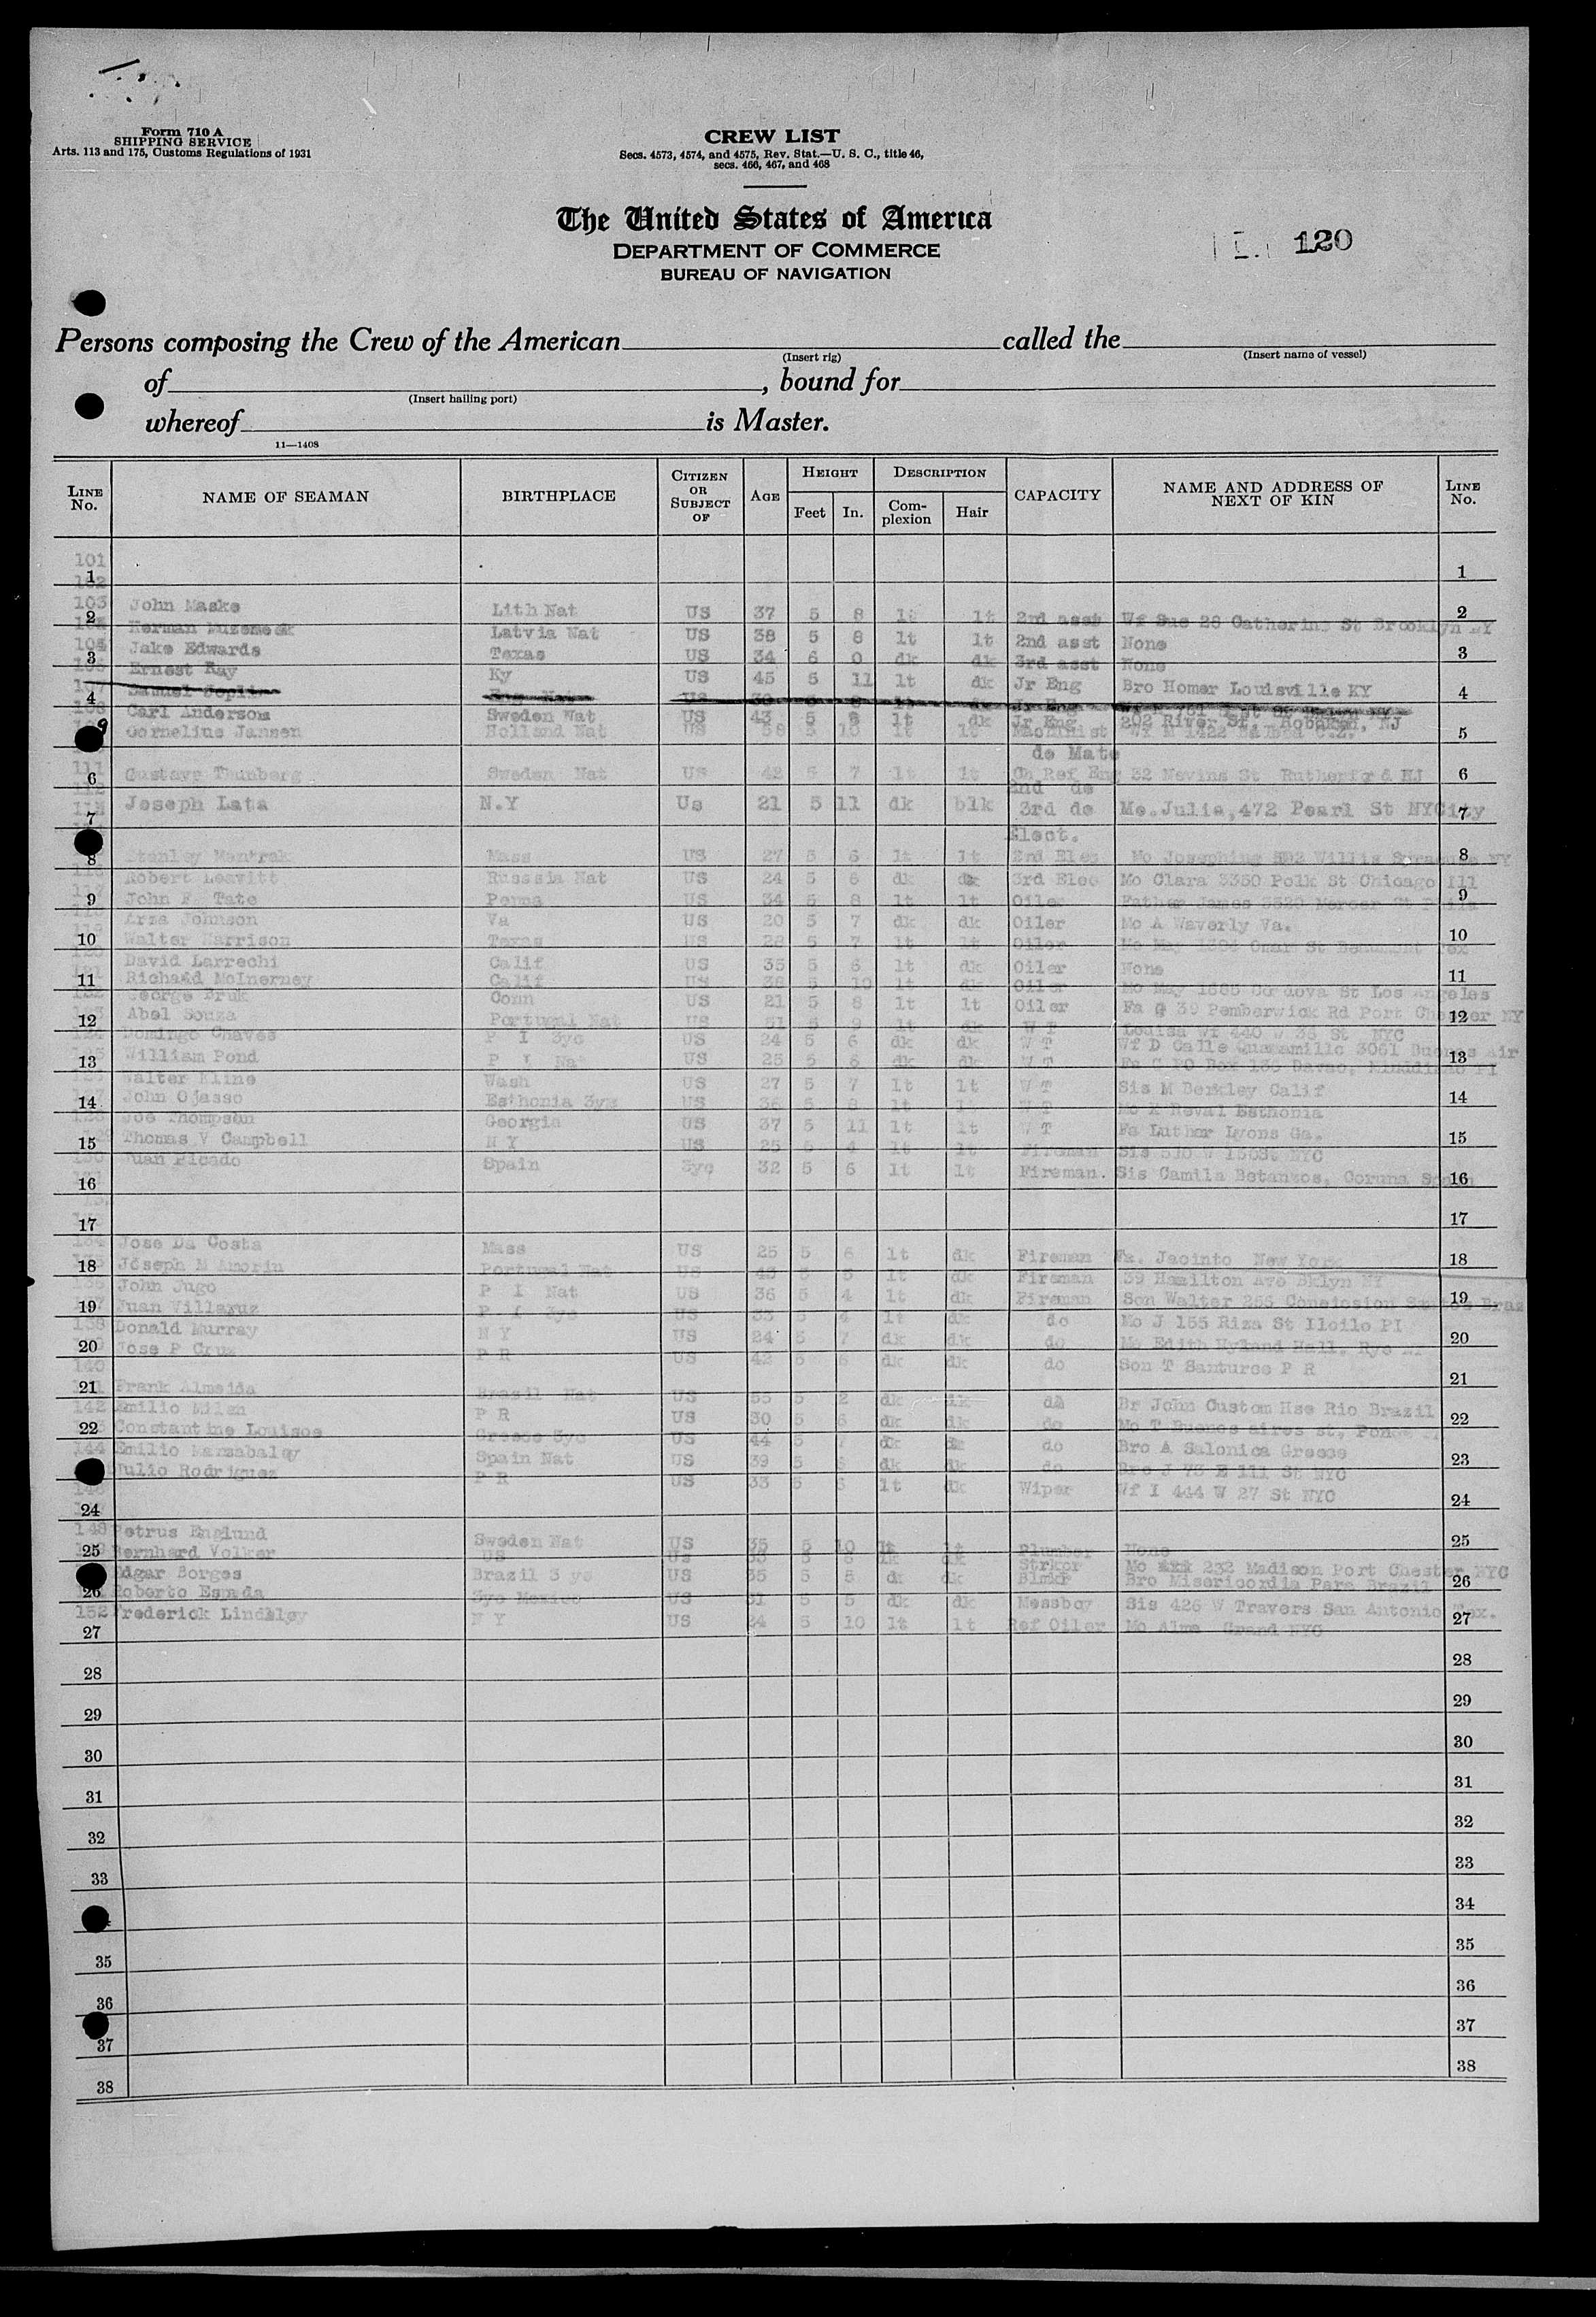 Form 710 A
SHIPPING SERVICE
Arts. 113 and 175, Customs Regulations of 1931
CREW LIST
Secs. 4573, 4574, and 4575, Rev. Stat.—U. S. C., title 46,
secs. 466, 467, and 468
The United States of America
DEPARTMENT OF COMMERCE
BUREAU OF NAVIGATION
120
Persons composing the Crew of the American called the
(Insert rig) (Insert name of vessel)
of , bound for
(Insert hailing port)
whereof is Master.
11—1408
LINE No. NAME OF SEAMAN BIRTHPLACE CITIZEN OR SUBJECT OF AGE HEIGHT Feet In. DESCRIPTION Complexion Hair CAPACITY NAME AND ADDRESS OF NEXT OF KIN LINE No.
101
1 1
103 John Maske Lith Nat US 37 5 8 lt lt 2rd asst Wf Sue 28 Catherine St Brooklyn NY
2 2
Herman Latvia Nat US 38 5 8 lt lt 2nd asst None
Jake Edwards Texas US 34 6 0 dk dk 3rd asst None
3 3
Ernest Ray Ky US 45 5 11 lt dk Jr Eng Bro Homer Louisville KY
4 4
Carl Anderson Sweden Nat US 43 5 8 lt dk Jr Eng 202 River St. Hoboken, NJ
Cornelius Jansen Holland Nat US 58 5 10 lt lt Machinist Wf M 1422 Balboa C.Z.
5
de Mate
6 Gustave Thunberg Sweden Nat US 42 5 7 lt lt Ch Ref Eng 32 Nevins St Rutherford NJ 6
2nd de
Joseph Lata N.Y Us 21 5 11 dk blk 3rd de Mo.Julia,472 Pearl St NYCity
7 7
Elect.
8 Stanley Mass US 27 5 6 lt lt 2nd Elec Mo Josephine 502 Willis Syracuse NY 8
Robert Leavitt Russsia Nat US 24 5 6 dk dk 3rd Elec Mo Clara 3350 Polk St Chicago Ill
9 John F. Tate Penna US 34 5 8 lt lt Oiler Father James 3520 Mercer St Phila 9
Arza Johnson Va US 20 5 7 dk dk Oiler Mo A Waverly Va.
10 Walter Harrison Texas US 28 5 7 lt lt Oiler Mo May St Beaumont Tex 10
David Larrechi Calif US 35 5 6 lt dk Oiler None
11 Richard McInerney Calif US 38 5 10 lt dk Oiler Mo May 1685 Cordova St Los Angeles 11
George Bruk Conn US 21 5 8 lt lt Oiler Fa G 39 Pemberwick Rd Port Chester NY
12 Abel Souza Portugal Nat US 51 5 9 lt dk W T Louisa Wf 440 W 36 St NYC 12
Domingo Chaves P I 3yc US 24 5 6 dk dk W T Wf D Calle 3061 Buenos Air
13 William Pond P I Nat US 25 5 6 dk dk W T Fa C PO Box 130 Davao, PI 13
Walter Kline Wash US 27 5 7 lt lt W T Sis M Berkley Calif.
14 John Ojasso Esthonia 3yc US 36 5 8 lt lt W T Mo Reval Esthonia 14
Joe Thompson Georgia US 37 5 11 lt lt W T Fa Luther Lyons Ga.
15 Thomas V Campbell N Y US 25 5 4 lt lt Fireman Sis 510 W NYC 15
Juan Picado Spain 3yc 32 5 6 lt lt Fireman. Sis Camila Betanzos, Coruna Spain
16 16
17 17
134 Jose Da Costa Mass US 25 5 6 lt dk Fireman Fa. Jacinto New York
18 Joseph M Amorin Portugal Nat US 43 5 5 lt dk Fireman 39 Hamilton Ave Bklyn NY 18
John Jugo P I Nat US 36 5 4 lt dk Fireman Son Walter 255 Santos Braz
19 Juan Villaruz P I 3yc US 33 5 4 lt dk do Mo J 155 Riza St Iloilo PI 19
138 Donald Murray N Y US 24 5 7 dk dk do Mo Edith Hyland Hall, Rye
20 Jose P Cruz P R US 42 5 6 dk dk do Son T Santurce P R 20
140
21 Frank Almeida Brazil Nat US 55 5 2 dk dk do Br John Custom Hse Rio Brazil 21
142 Emilio Milan P R US 30 5 6 dk dk do Mo T Buenos aires st, Ponce
22 Constantine Louisos Greece 3yc US 44 5 7 dk do Bro A Salonica Greece 22
144 Emilio Spain Nat US 39 5 6 dk dk do Bro J 73 E 111 St NYC
Julio Rodriguez P R US 33 5 6 lt dk Wiper Wf I 444 W 27 St NYC 23
24 24
148 Petrus Englund Sweden Nat US 35 5 10 lt lt Plumber None
25 Bernhard Volker US Us 35 5 6 dk Strkpr Mo 232 Madison Port Chester NYC 25
Edgar Borges Brazil 3 yc US 35 5 5 dk dk Bro Misericordia Para Brazil
26 Roberto Espada 3yc Mexico US 31 5 5 dk dk Messboy Sis 426 W Travers San Antonio Tex. 26
152 Frederick Lindbley N Y US 24 5 10 lt lt Ref Oiler Mo Alma Grand NYC
27 27
28 28
29 29
30 30
31 31
32 32
33 33
34
35 35
36 36
37 37
38 38